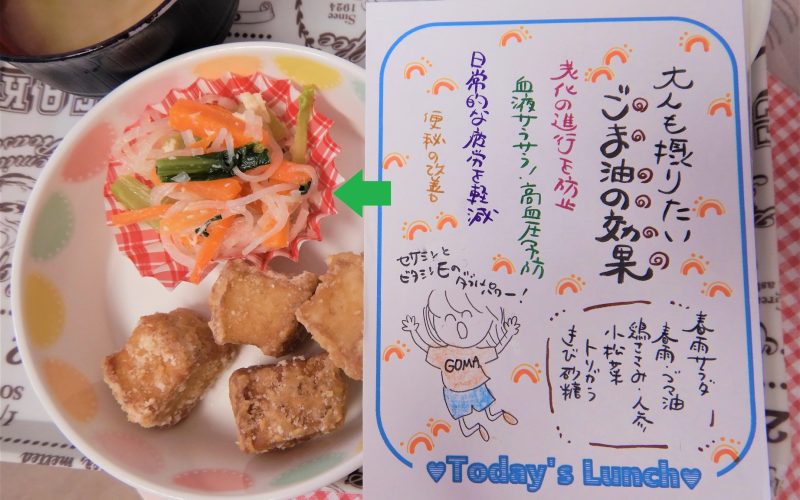 大人も摂りたい
ごま油の効果
老化の進行を防止
血液サラサラ!高血圧予防
日常的な疲労を軽減
便秘の改善
セサミンと
ビタミンEのダブルパワー!
GOMA
春雨サラダ
春雨・ゴマ油
鶏ささみ・人参
小松菜
トリガラ
きび砂糖
♥Today's Lunch♥
Since
1924